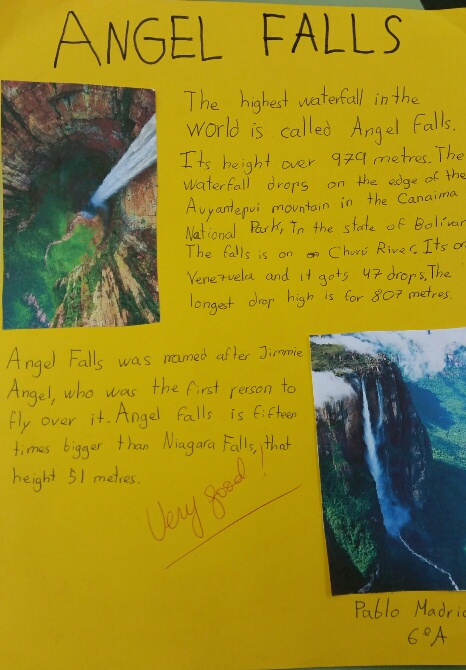 ANGEL FALLS
The highest waterfall in the
world is called Angel Falls.
Its height over 979 metres. The
waterfall drops on the edge of the
Auyantepui mountain in the Canaima
National Park, in the state of Bolívar
The falls is on Churú River. Its on
Venezuela and it gots 47 drops. The
longest drop high is for 807 metres.
Angel Falls was named after Jimmie
Angel, who was the first person to
fly over it. Angel Falls is fifteen
times bigger than Niagara Falls, that
height 51 metres.
Very good!
Pablo Madrid
6ºA